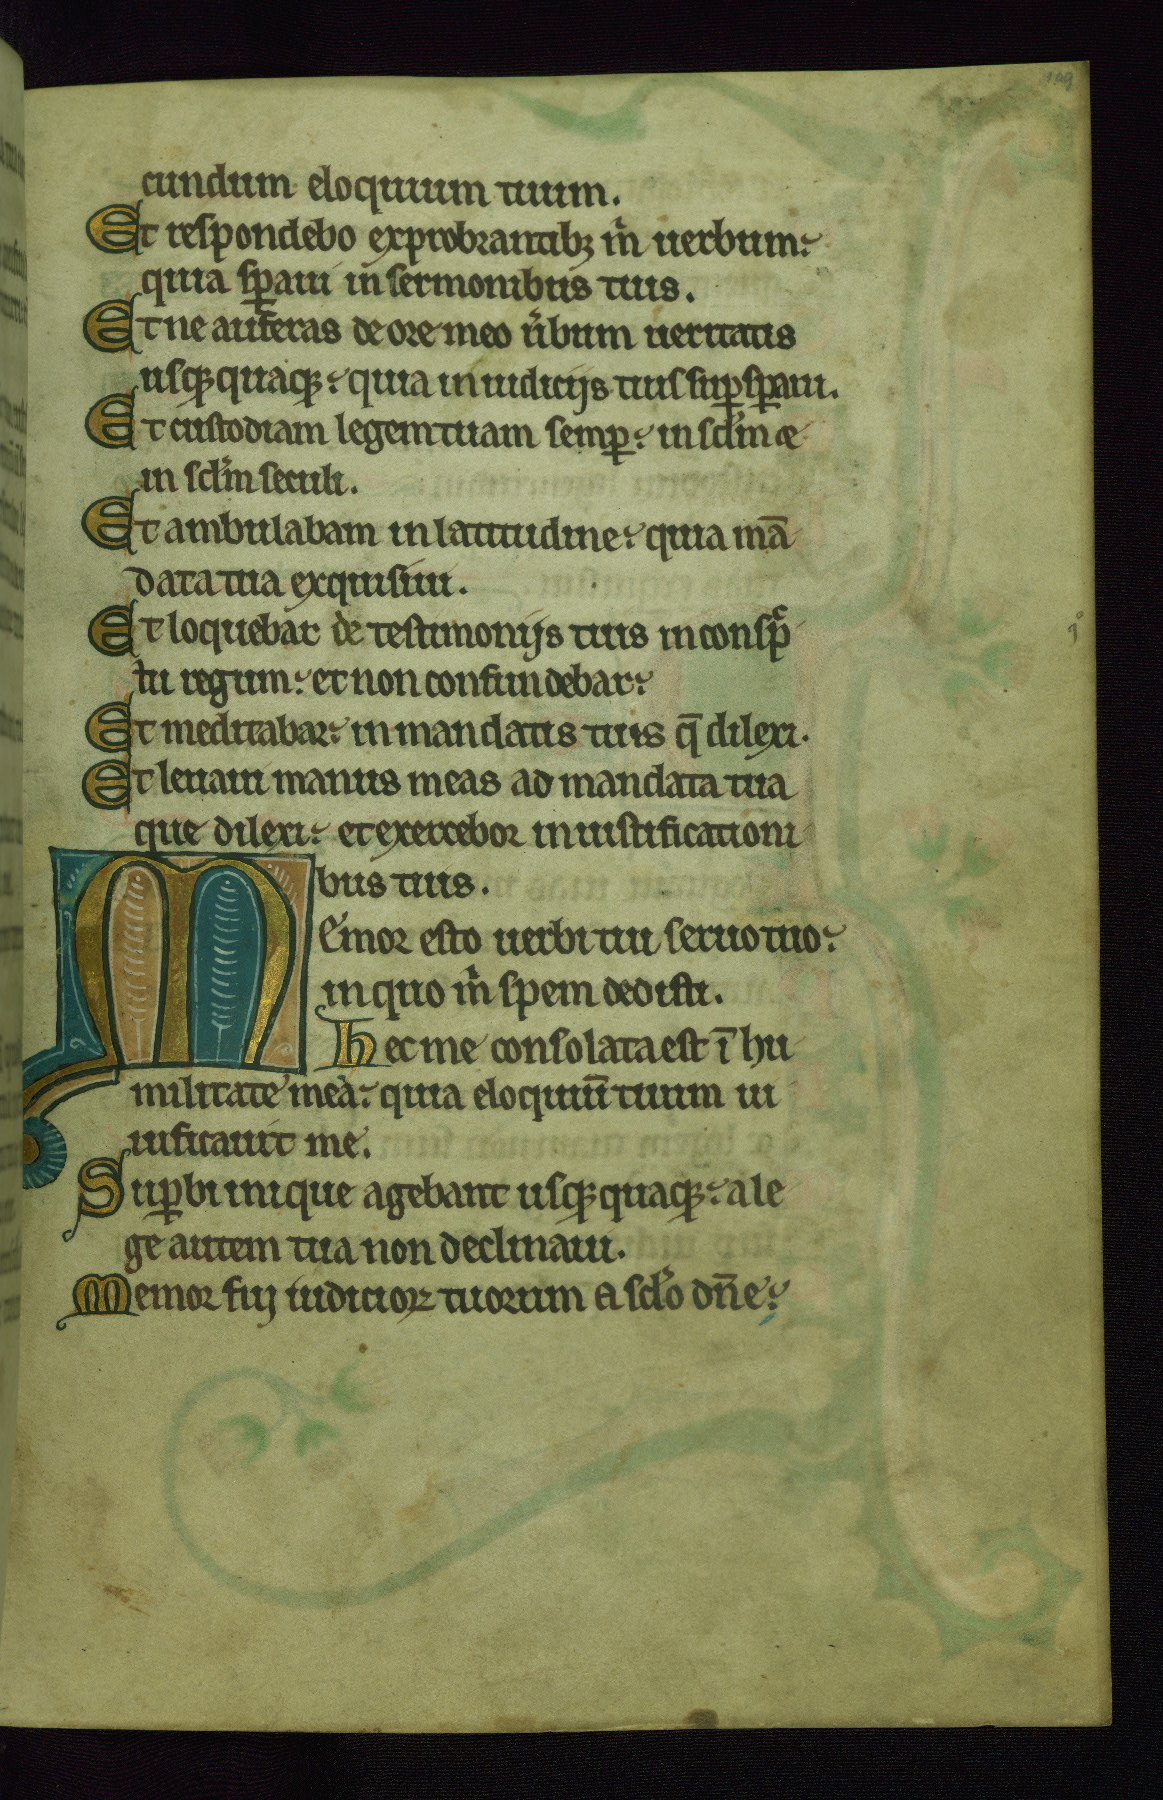 109
cundum eloquium tuum.
Et respondebo exprobrantibꝫ m̄ uerbum:
quia sꝑaui in sermonibus tuis.
Et ne auferas de ore meo u̾bum ueritatis
usqꝫquaqꝫ: quia in iudicijs tuis suꝑsꝑaui.
Et custodiam legem tuam semꝑ: in sclm̄ &
in sclm̄ seculi.
Et ambulabam in latitudine: quia mā
data tua exquisiui.
Et loquebar de testimonijs tuis in consp̄
tu regum: et non confundebar:
Et meditabar: in mandatis tuis q̄ dilexi.
Et leuaui manus meas ad mandata tua
que dilexi: et exercebor in iustificationi
bus tuis.
Memor esto uerbi tui seruo tuo:
in quo m̄ spem dedisti.
Hec me consolata est ī hu
militate mea: quia eloquiū tuum ui
uificauit me.
Suꝑbi inique agebant usqꝫquaqꝫ: a le
ge autem tua non declinaui.
Memor fui iudicioꝝ tuorum a sclo dn̄e: